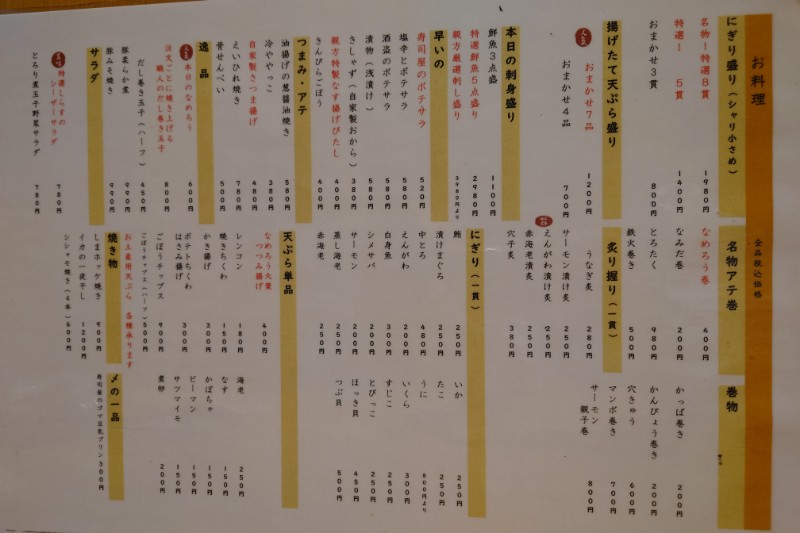 お料理
全品税込価格
にぎり盛り(シャリ小さめ)
名物!特選8貫 1980円
特選! 5貫 1400円
おまかせ3貫 800円
揚げたて天ぷら盛り
人気 おまかせ7品 1200円
おまかせ4品 700円
本日の刺身盛り
鮮魚3点盛 1100円
特選鮮魚5点盛り 2980円
親方厳選刺し盛り 3980円より
早いの
寿司屋のポテサラ 520円
塩辛とポテサラ 580円
酒盗のポテサラ 580円
漬物(浅漬け) 580円
きしゃず(自家製おから) 380円
親方特製なす揚げびたし 400円
きんぴらごぼう 400円
つまみ・アテ
油揚げの葱醤油焼き 580円
冷ややっこ 380円
自家製さつま揚げ 480円
えいひれ焼き 780円
骨せんべい 500円
逸品
人気 本日のなめろう 600円
注文ごとに焼き上げる
職人のだし巻き玉子 800円
だし巻き玉子(ハーフ) 450円
豚柔らか煮 990円
豚みそ焼き 990円
サラダ
特選しらすの
シーザーサラダ 780円
とろり煮玉子野菜サラダ 780円
名物アテ巻
なめろう巻 400円
なみだ巻 200円
とろたく 980円
鉄火巻き 500円
炙り握り(一貫)
うなぎ炙 280円
サーモン漬け炙 250円
えんがわ漬け炙 250円
赤海老漬炙 250円
穴子炙 380円
にぎり(一貫)
鮪 250円
漬けまぐろ 250円
中とろ 480円
えんがわ 200円
白身魚 300円
シメサバ 200円
サーモン 250円
蒸し海老 250円
赤海老 250円
いか 250円
たこ 250円
うに 800円より
いくら 300円
すじこ 250円
とびっこ 250円
ほっき貝 450円
つぶ貝 500円
天ぷら単品
なめろう大葉
つつみ揚げ 400円
レンコン 180円
焼きちくわ 150円
かき揚げ 300円
ポテトちくわ
はさみ揚げ 300円
ごぼうチップス 900円
ごぼうチップス(ハーフ) 500円
お土産用天ぷら 各種承ります
海老 250円
なす 150円
かぼちゃ 150円
ピーマン 150円
サツマイモ 150円
煮卵 200円
焼き物
しまホッケ焼き 900円
イカの一夜干し 1200円
シシャモ焼き(4本) 600円
〆の一品
寿司屋のゴマ豆乳プリン 300円
巻物
かっぱ巻き 200円
かんぴょう巻き 200円
穴きゅう 600円
マンボ巻き 700円
サーモン
親子巻き 800円